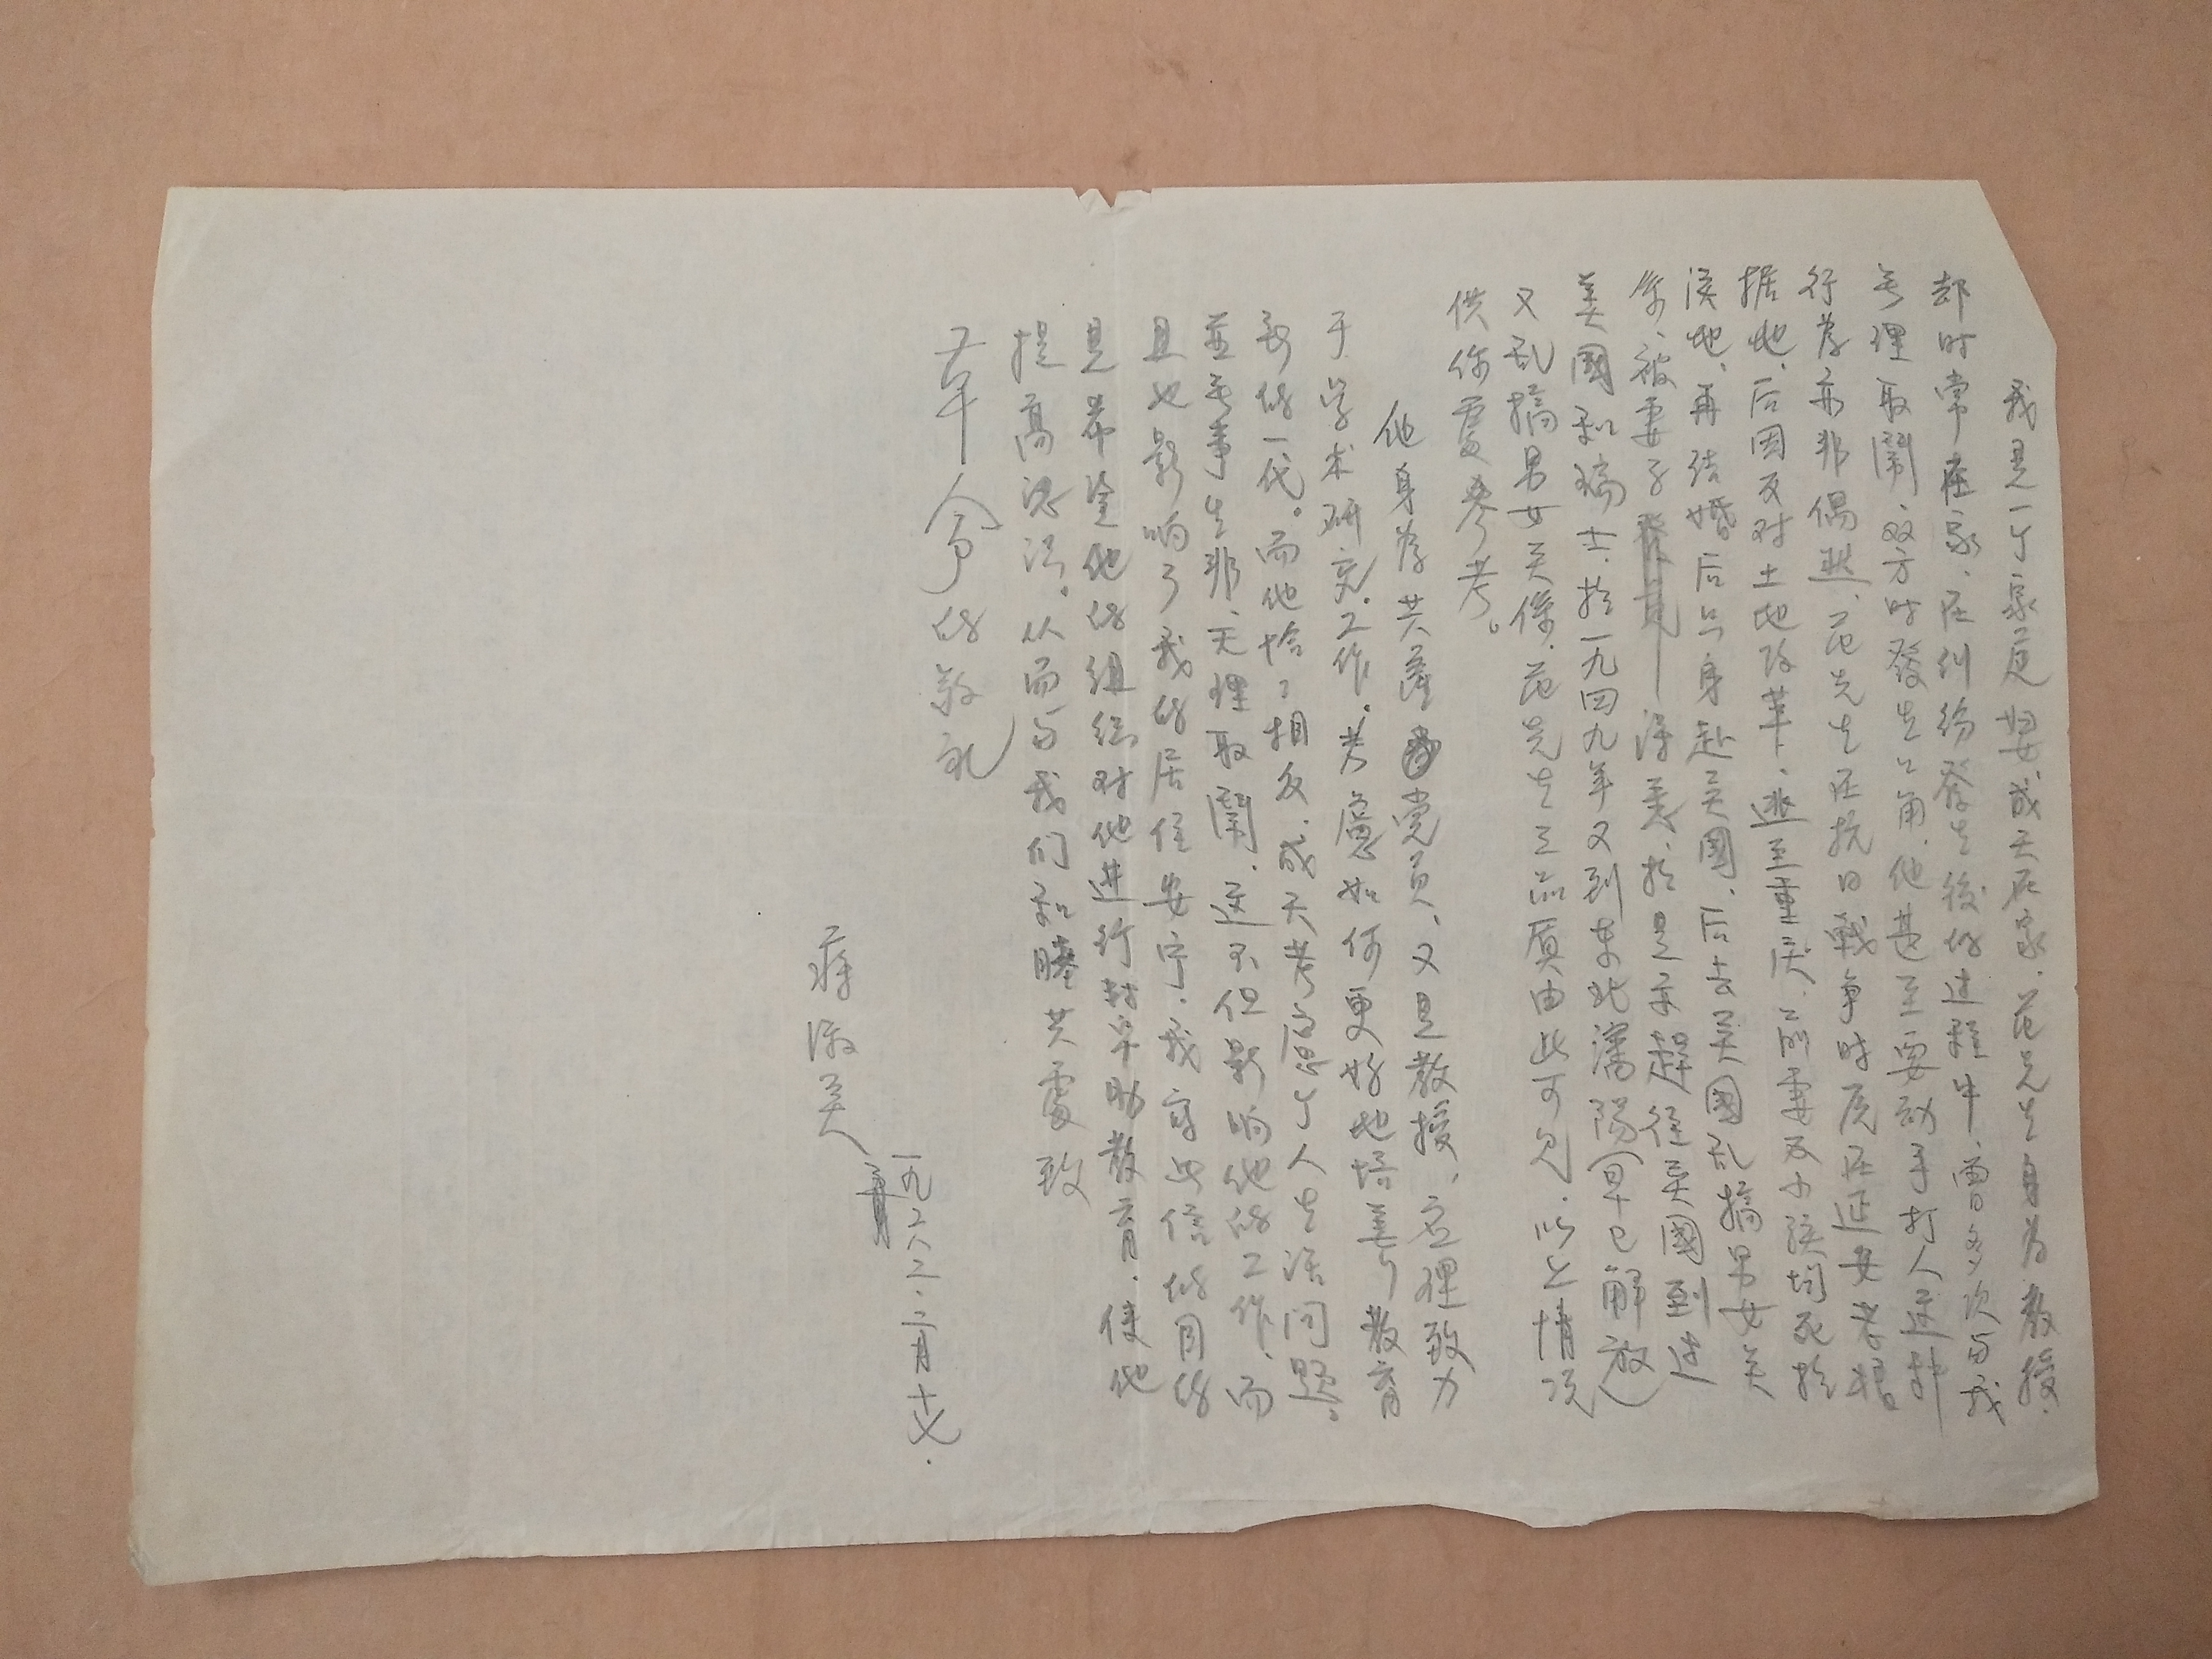 我是一个家庭妇女成天在家.范先生身为教授.
却时常在家、在纠纷發生後的过程中、曾多次与我
無理取鬧、双方时發生口角.他甚至要动手打人这种
行为亦非偶然、范先生在抗日戰争时
据地、后因反对土地改革、逃至重庆、前妻及小孩均死於
该地、再结婚后只身赴美國、后去英國乱搞男女关
係、被妻子得悉、於是亦趕往英國到过
美國和瑞士.於一九四九年又到东北瀋陽(早已解放)
又乱搞男女关係.范先生之品质由此可见.以上情况
供你處參考。
他身为共產党员、又是教授、应理致力
于学术研究工作.考慮如何更好地培养教育
新的一代。而他恰々相反.成天考慮个人生活问题。
並無事生非、无理取鬧、这不但影响他的工作、而
且也影响了我的居住安宁.我写此信的目的
是希望他的组织对他进行帮助教育.使他
提高認識。从而与我们和睦共處 致
革命的敬礼
蒋淑英
一九八二.二月十七.